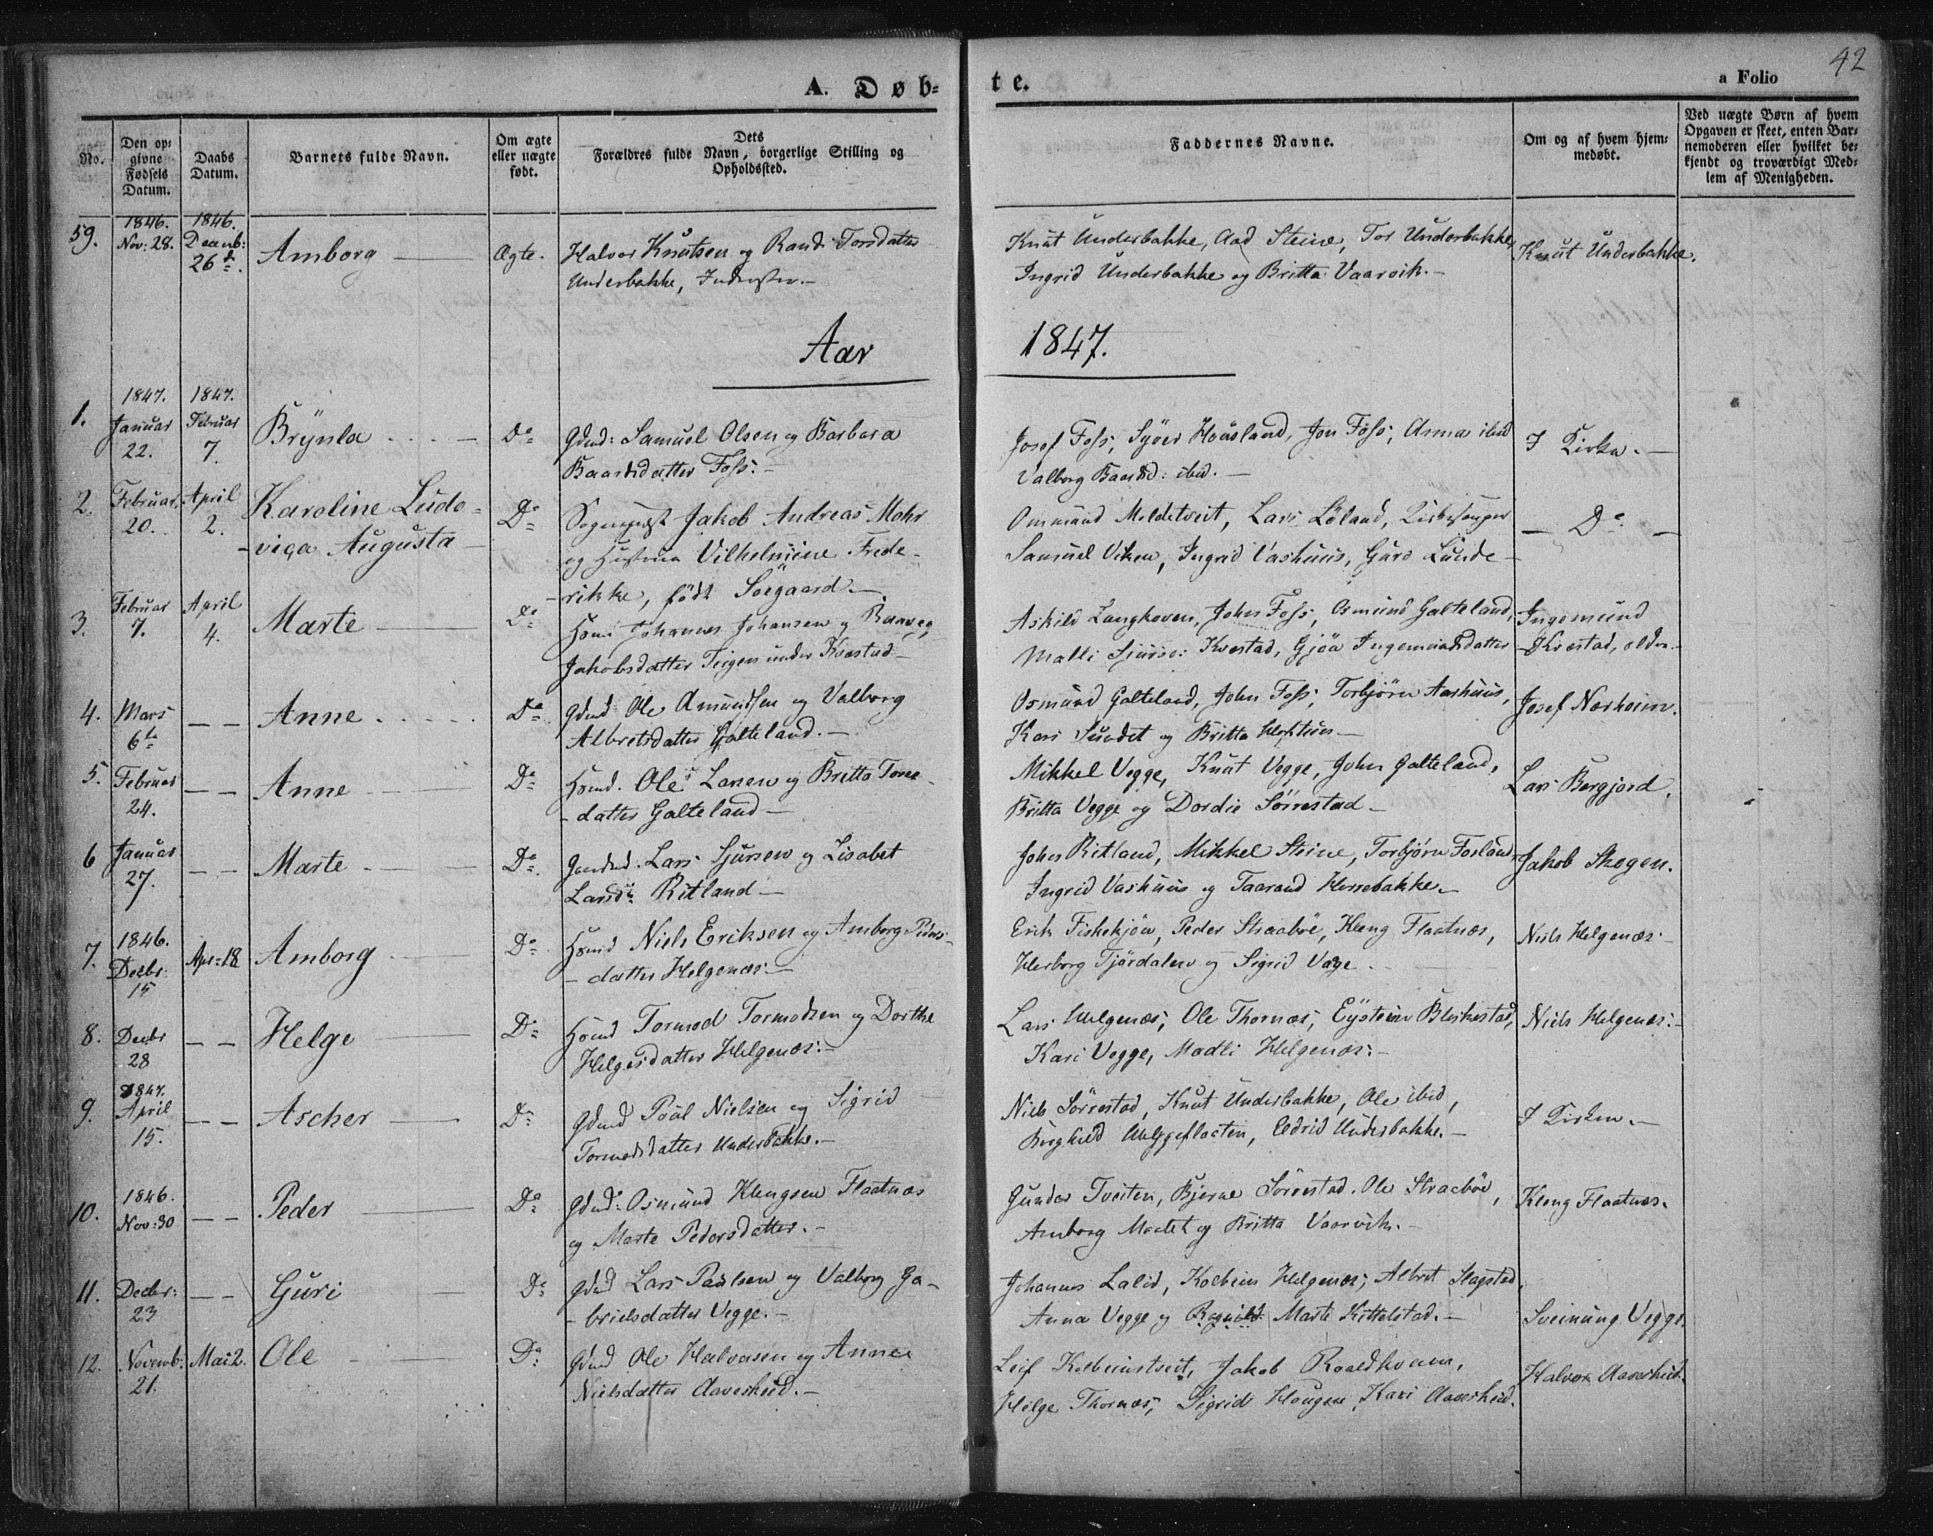 A. Døbte.
a Folio 42
No.
Den opgivne Fødsels Datum.
Daabs Datum.
Barnets fulde Navn.
Om ægte eller uægte født.
Dets Forældres fulde Navn, borgerlige Stilling og Opholdssted.
Faddernes Navne.
Om og af hvem hjemmedøbt.
Ved uægte Børn af hvem Opgaven er skeet, enten Barnemoderen eller hvilket bekjendt og troværdigt Medlem af Menigheden.
59. 1846. Nov: 28. 1846. Decemb: 26d. Amborg Ægte. Halvor Knutsen og Randi Torsdatter
Underbakke,
Knut Underbakke, Aad Steine, Tor Underbakke,
Ingrid Underbakke og Britta Vaarvik.
Knut Underbakke.
Aar 1847.
1. 1847. Januar 22. 1847. Februar 7. Brynla Do Gdmd: Samuel Olsen og Barbara
Baardsdatter Foss.
Josef Foss, Syver Haasland, Jon Foss, Asma ibid
Valborg Baardsd: ibid.
I Kirken.
2. Februar 20. April 2. Karoline Ludo-
viça Augusta Do Sognepræst Jakob Andreas Mohr
og Hustrue Vilhelmine Frede-
rikke, født Søegaard.
Ommund Moldetveit, Lars Løland, Kirkesanger
Samuel Viken, Ingrid Vashuus, Guro Lunde
Do
3. Februar 7. April 4. Marte Do Hsmd Johannes Johansen og Ranveg
Jakobsdatter Teigen under Kvæstad
Askild Langhoven, John Foss, Osmund Galteland,
Malli Kvestad, Gjøa Ingemundsdatter
Ingemund
Kvæstad,
4. Mars 6te Anne Do Gdmd: Ole Amundsen og Valborg
Albretsdatter Galteland.
Osmund Galteland, John Foss, Torbjørn Aashuus,
Kari Sundet og Britta
Josef Nærheim.
5. Februar 24. Anne Do Hsmd. Ole Larsen og Britta Tores-
datter Galteland
Mikkel Vegge, Knut Vegge, John Galteland,
Britta Vegge og Dordie Sørrestad
Lars Bergjord.
6 Januar 27. Marte Do Gaardmd. Lars Sjursen og Lisabet
Larsd: Ritland
John Ritland, Mikkel Steine, Torbjørn Fosland
Ingrid Vashuus og Taarand Herrebakke.
Jakob Skogen.
7. 1846. Decbr: 15 Apr: 18 Amborg Do Hsmd Niels Eriksen og Amborg Peders-
datter Helgenæs.
Erik Fiskekjøn, Peder Straabøe, Kleng Flaatnæs,
Herborg Tjørdalen og Sigrid Vege.
Niels Helgenæs.
8. Decbr 28 Helge Do Hsmd Tormod Tormodsen og Dorthe
Helgesdatter Helgenæs.
Lars Helgenæs, Ole Thornæs, Eystein Bleskestad,
Kari Vegge, Madli Helgenæs.
Niels Helgenæs.
9. 1847. April 15. Ascher Do Gdmd Poul Nielsen og Sigrid
Tormodsdatter Underbakke.
Niels Sørrestad, Knut Underbakke, Ole ibid,
Borghild Helgeflaaten, Eldrid Underbakke.
I Kirken.
10. 1846. Nov: 30 Peder Do Gdmd: Osmund Klengsen Flaatnæs
og Marte Pedersdatter.
Gunder Tveiten, Bjerne Sørrestad. Ole Straabøe,
Amborg Moelet og Britta Vaarvik.
Kleng Flaatnæs.
11. Decbr: 23 Guri Do Gdmd Lars Paulsen og Valborg Ga-
brielsdatter Vegge.
Johannes Lalid, Kolbein Helgenæs, Albret Slagstad,
Anna Vegge og Ragnild Marte Kittelstad.
Sveinung Vegge.
12. Novemb: 21. Mai 2. Ole Do Gdmd Ole Halvorsen og Anne
Nielsdatter Aaverheid.
Leif Kolbeinstveit, Jakob Roaldkvam,
Helge Thornæs, Sigrid Haugen, Kari Aaverheid.
Halvor Aaverheid.